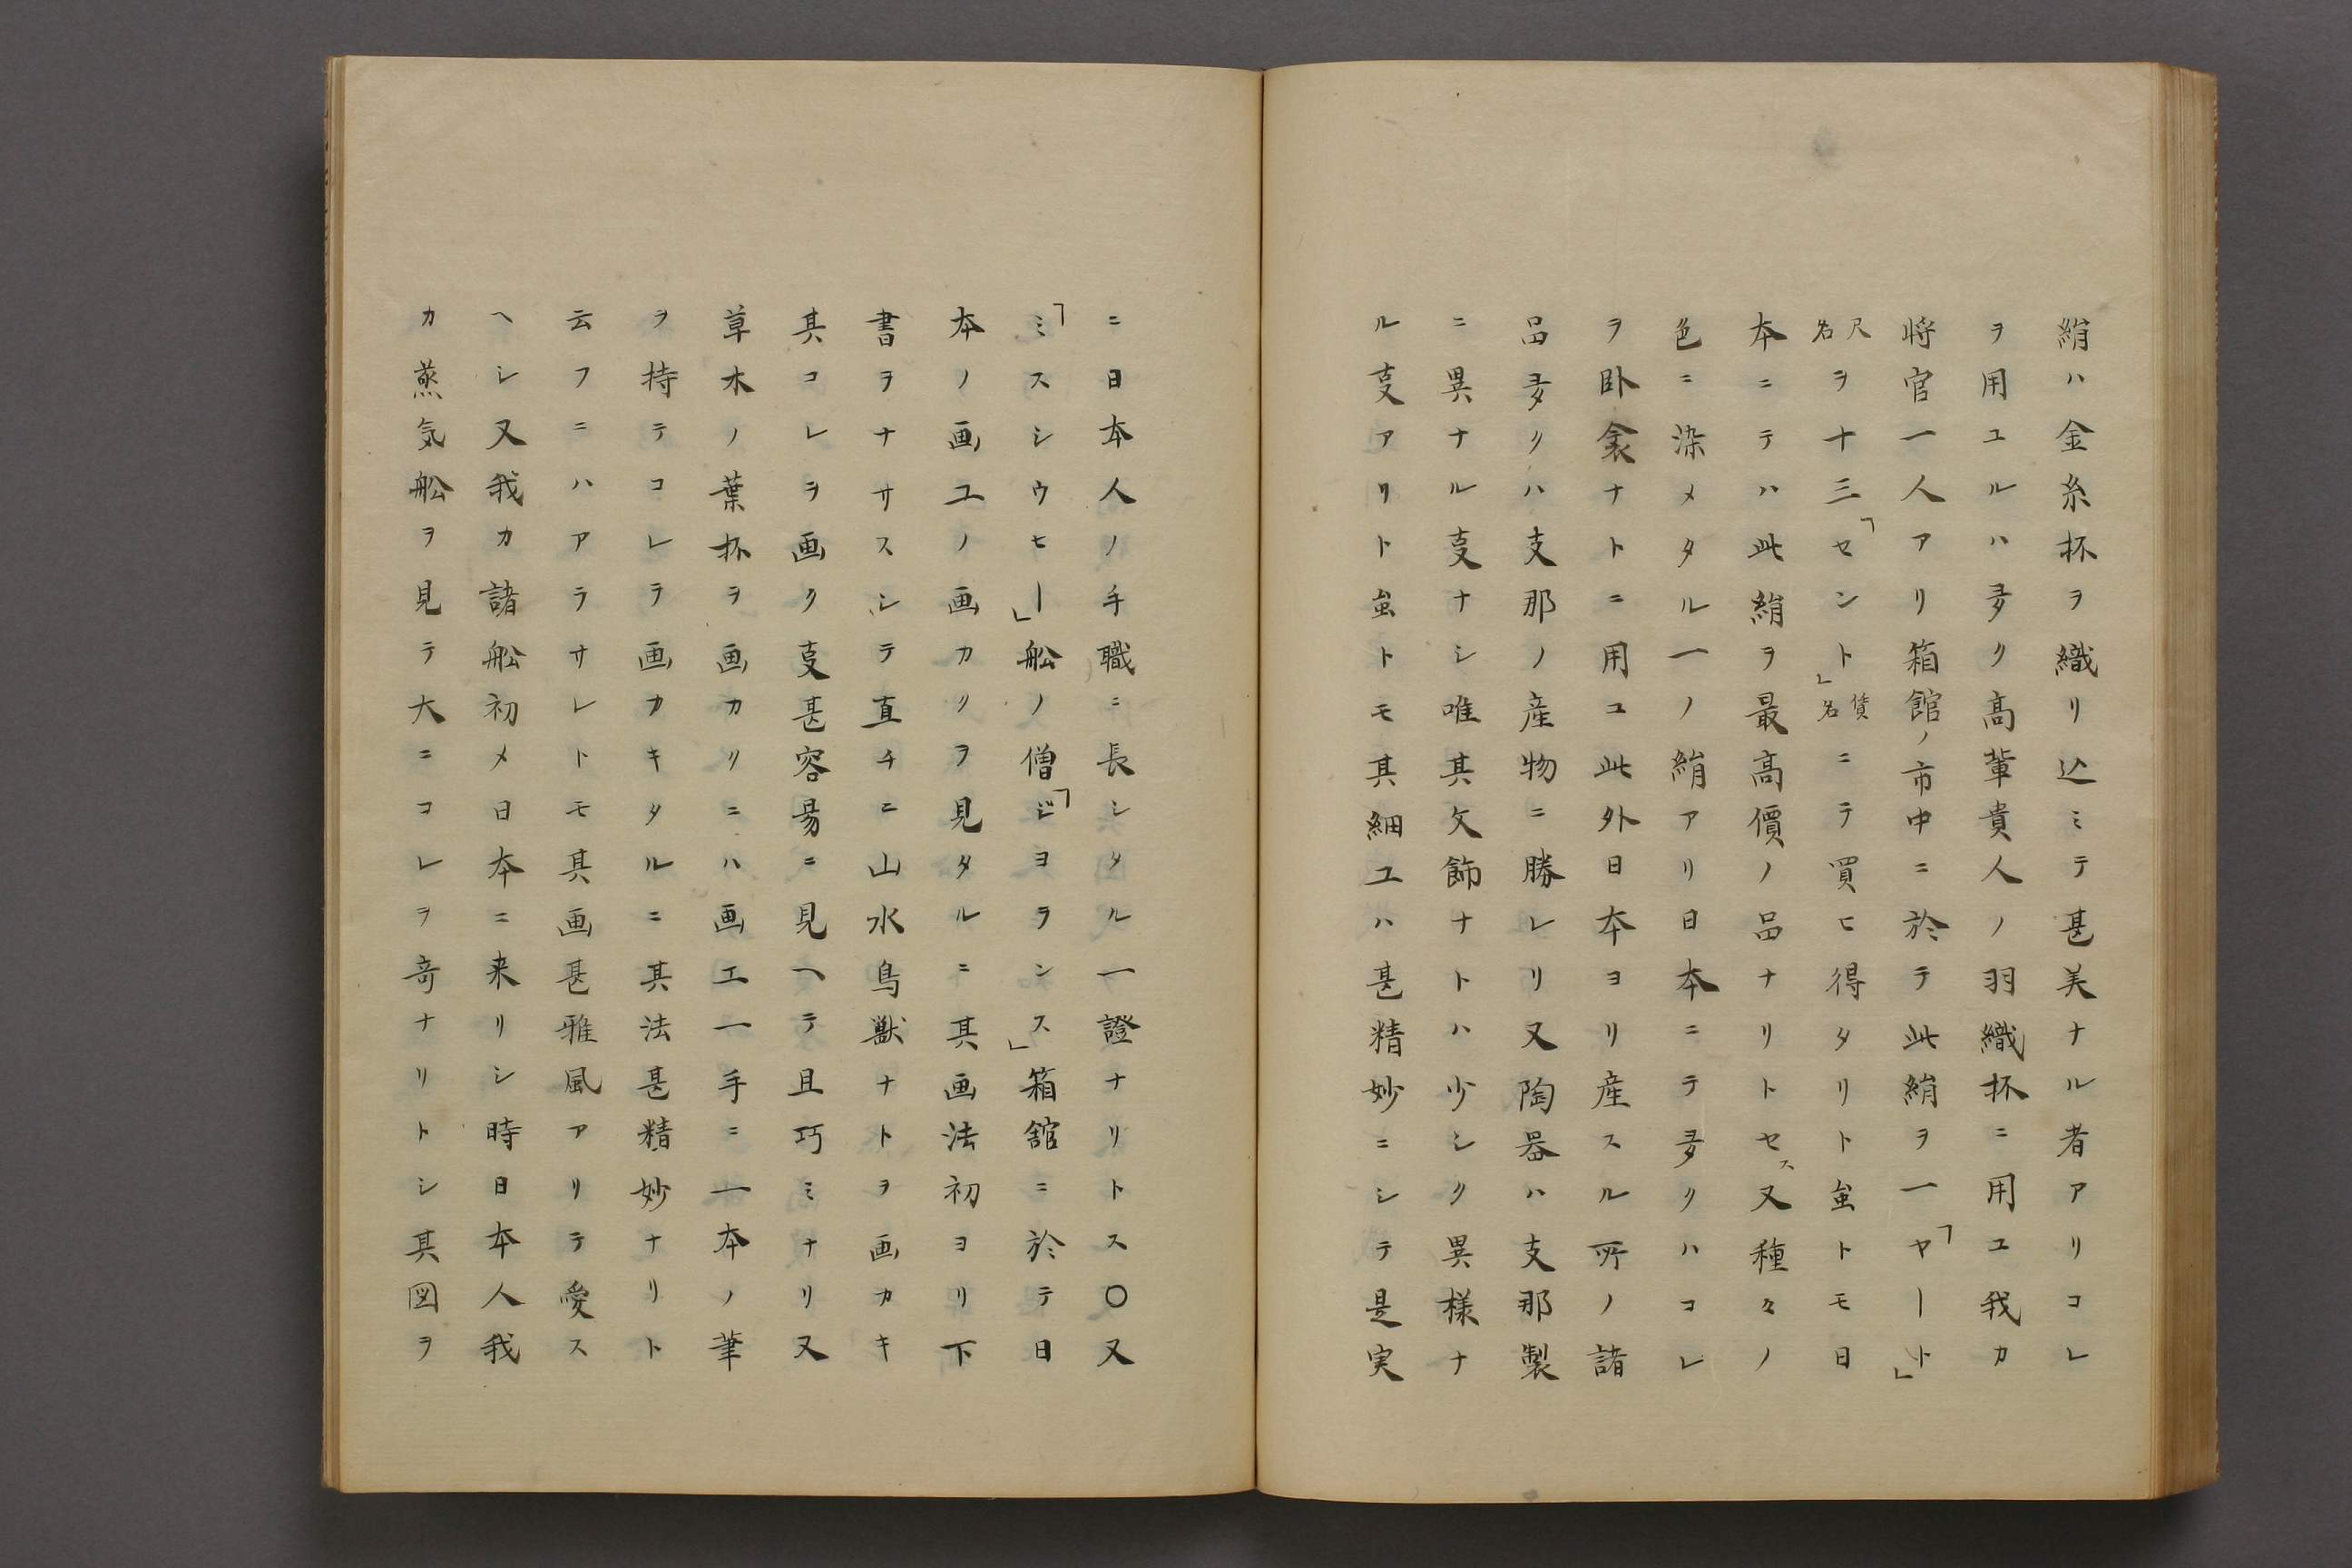 絹ハ金糸杯ヲ織リ込ミテ甚美ナル者アリコレ
ヲ用ユルハ多ク高輩貴人ノ羽織杯ニ用ユ我カ
将官一人アリ箱館ノ市中ニ於テ此絹ヲ一「ヤート」
尺名ヲ十三「セント」貨名ニテ買ヒ得タリト䖝トモ日
本ニテハ此絹ヲ最高價ノ品ナリトセス又種々ノ
色ニ染メタル一ノ絹アリ日本ニテ多クハコレ
ヲ卧衾ナトニ用ユ此外日本ヨリ産スル所ノ諸
品多クハ支那ノ産物ニ勝レリ又陶器ハ支那製
ニ異ナル㕝ナシ唯其文飾ナトハ少シク異様ナ
ル㕝アリト䖝トモ其細工ハ甚精妙ニシテ是実
ニ日本人ノ手職ニ長シタル一證ナリトス〇又
「ミスシウヒー」舩ノ僧「ジヨランス」箱舘ニ於テ日
本ノ画工ノ画カクヲ見タルニ其画法初ヨリ下
書ヲナサスシテ直チニ山水鳥獣ナトヲ画カキ
其コレヲ画ク㕝甚容昜ニ見ヘテ且巧ミナリ又
草木ノ葉杯ヲ画カクニハ画工一手ニ一本ノ筆
ヲ持テコレテ画カキタルニ其法甚精妙ナリト
云フニハアラサレトモ其画甚雅風アリテ愛ス
ヘシ又我カ諸舩初メ日本ニ来リシ時日本人我
カ蒸気舩ヲ見テ大ニコレヲ奇ナリトシ其図ヲ